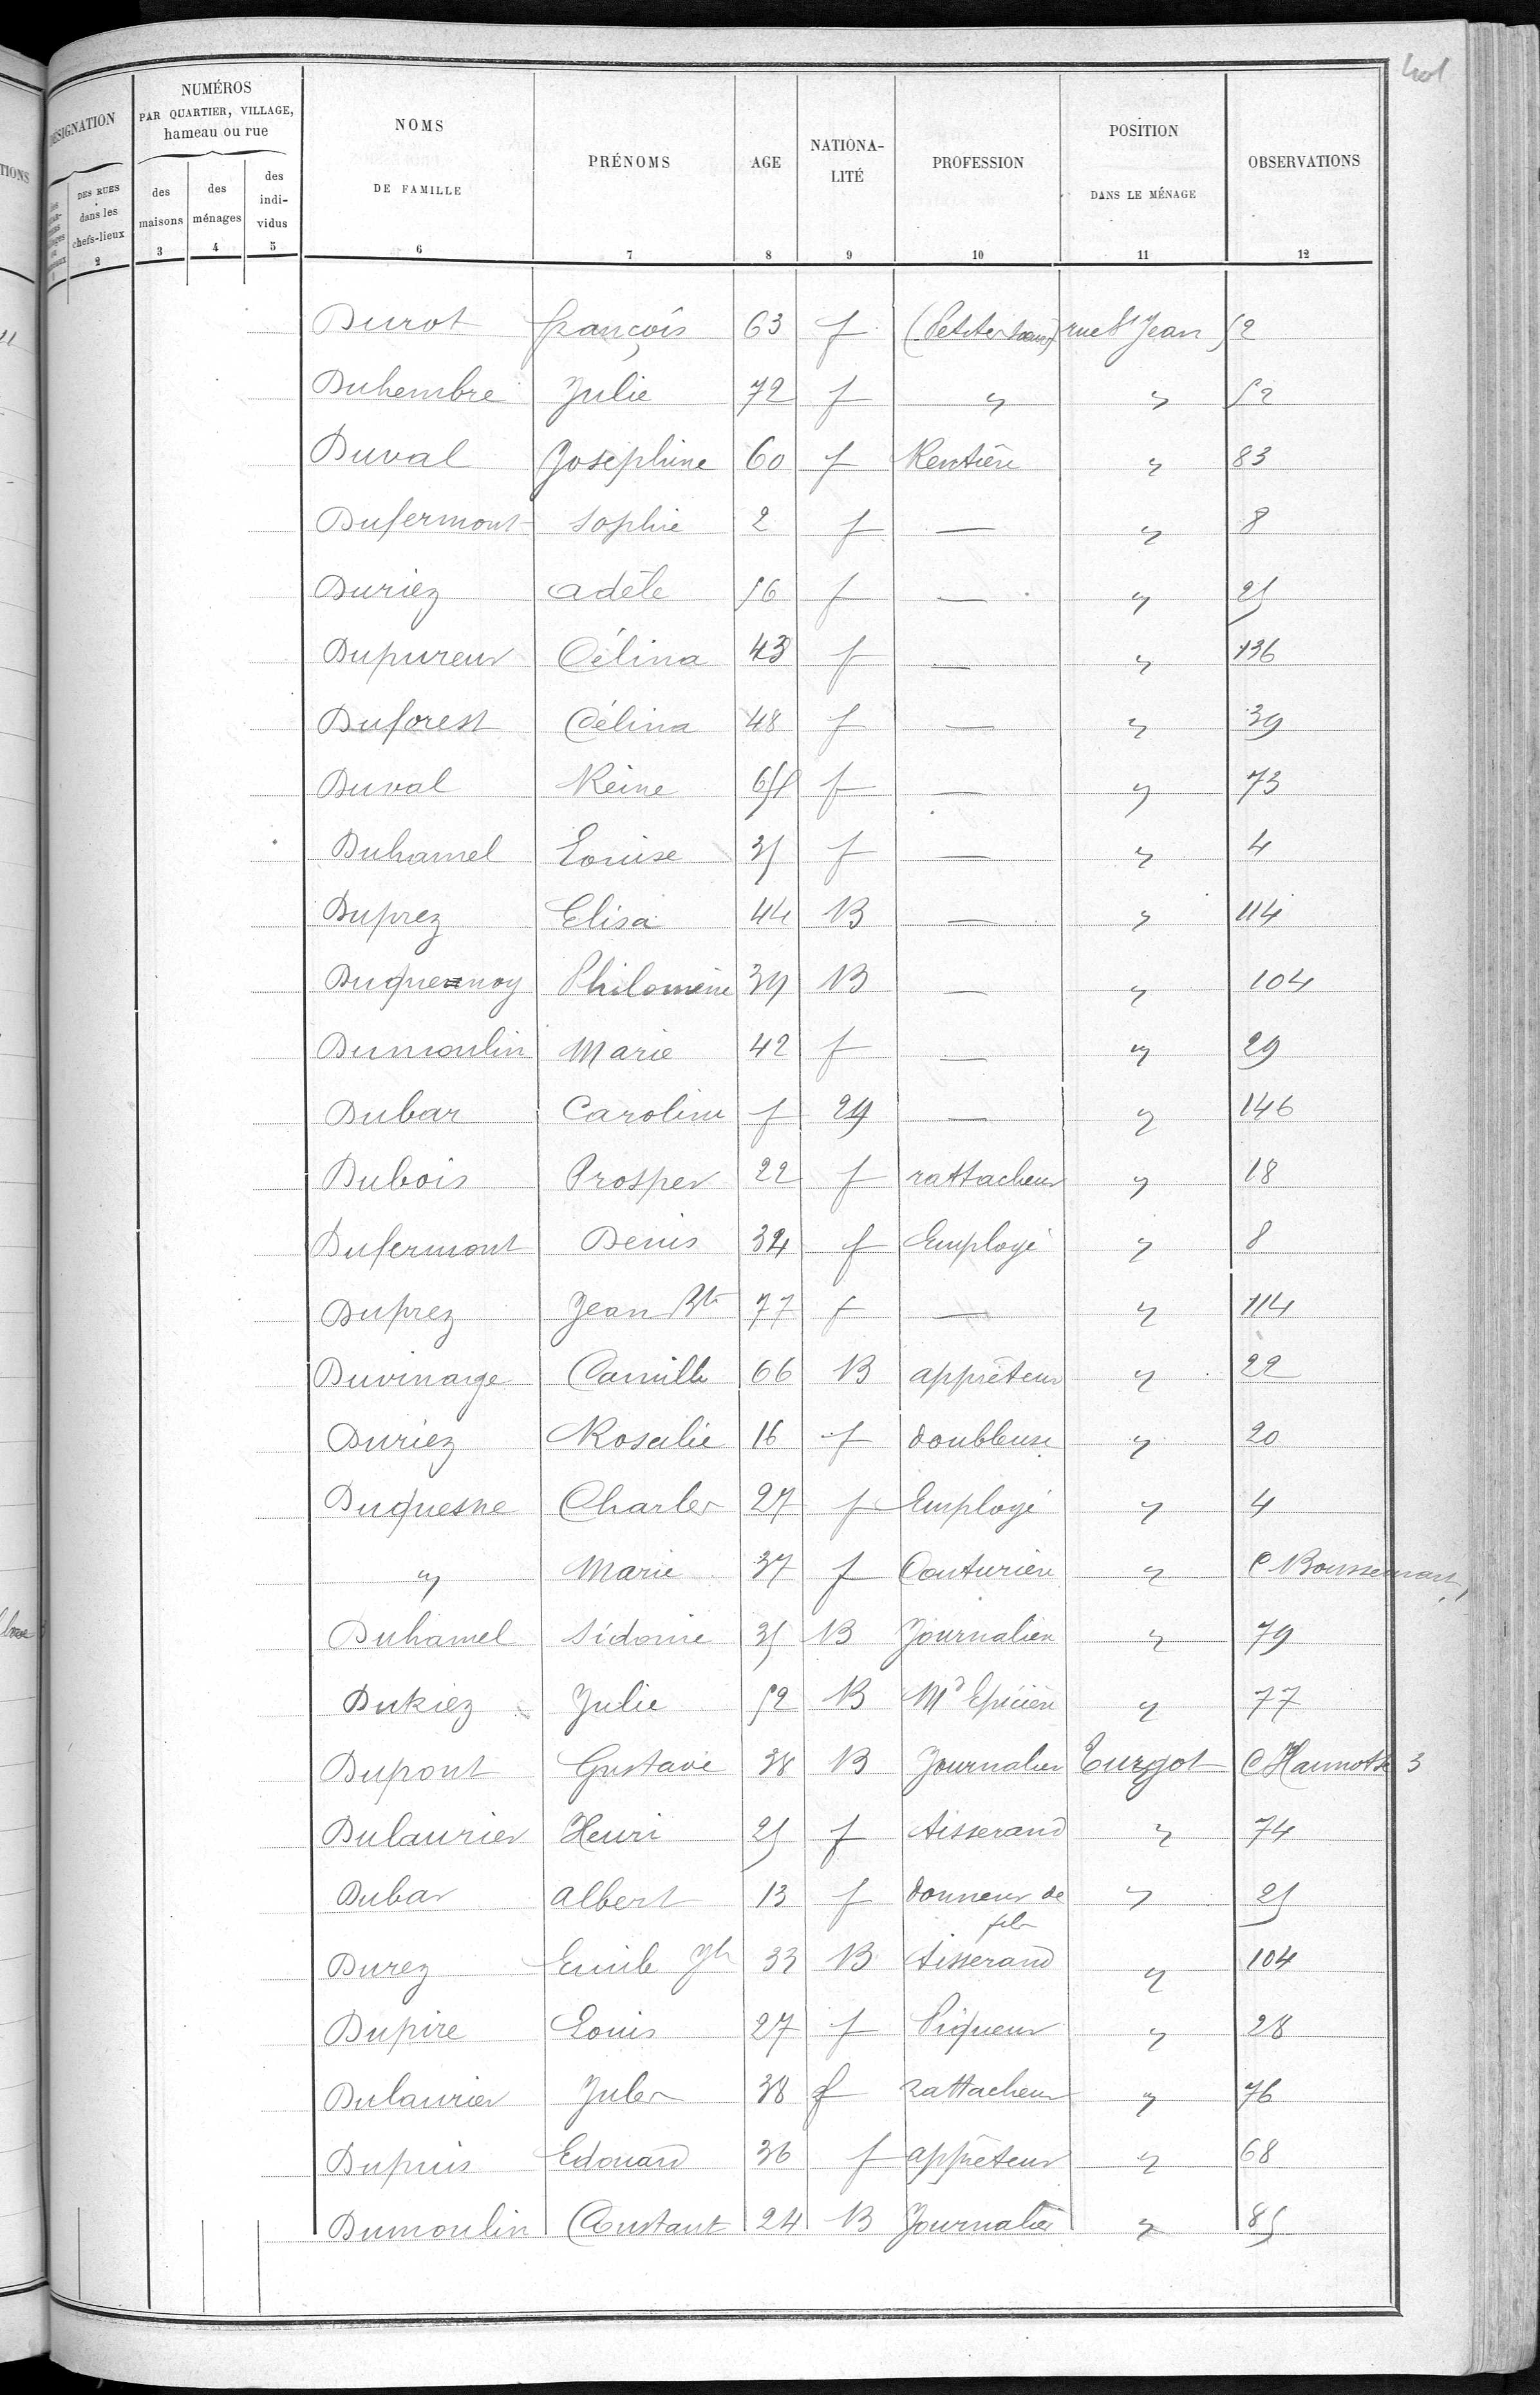 401
DESIGNATION
NUMÉROS
PAR QUARTIER, VILLAGE,
hameau ou rue
DES RUES
dans les
chefs-lieux
2
des
maisons
3
des
ménages
4
des
indi-
vidus
5
NOMS
DE FAMILLE
6
PRÉNOMS
7
AGE
8
NATIONA-
LITÉ
9
PROFESSION
10
POSITION
DANS LE MÉNAGE
11
OBSERVATIONS
12
Durot françois 63 f (Petites sœurs) rue St Jean 52
Duhembre Julie 72 f " " 52
Duval Joséphine 60 f Rentière " 83
Dufermont Sophie 2 f — " 8
Duriez adèle 56 f — " 25
Dupureur Célina 43 f — " 136
Duforest Célina 48 f — " 39
Duval Reine f — " 73
Duhamel Louise 35 f — " 4
Duprez Elisa 44 B — " 114
Duquesnoy Philomène 39 B — " 104
Dumoulin Marie 42 f — " 29
Dubar Caroline f 29 — " 146
Dubois Prosper 22 f rattacheur " 18
Dufermont Denis 34 f Employé " 8
Duprez Jean Bte 77 f — " 114
Duvinage Camille 66 B apprêteur " 22
Duriez Rosalie 16 f doubleuse " 20
Duquesne Charles 27 f Employé " 4
" Marie 37 f Couturière " C Boussemart
Duhamel Sidonie 35 B Journalière " 79
Dukiez Julie 52 B Mde Epicière " 77
Dupont Gustave 38 B Journalier Turgot C Hannotte 3
Dulaurier Henri 25 f tisserand " 74
Dubar albert 13 f donneur de " 25
fils
Durez Emile Jh 33 B tisserand " 104
Dupire Louis 27 f Piqueur " 28
Dulaurier Jules 38 f rattacheur " 76
Dupuis Edouard 36 f apprêteur " 68
Dumoulin Constant 24 B Journalier " 85